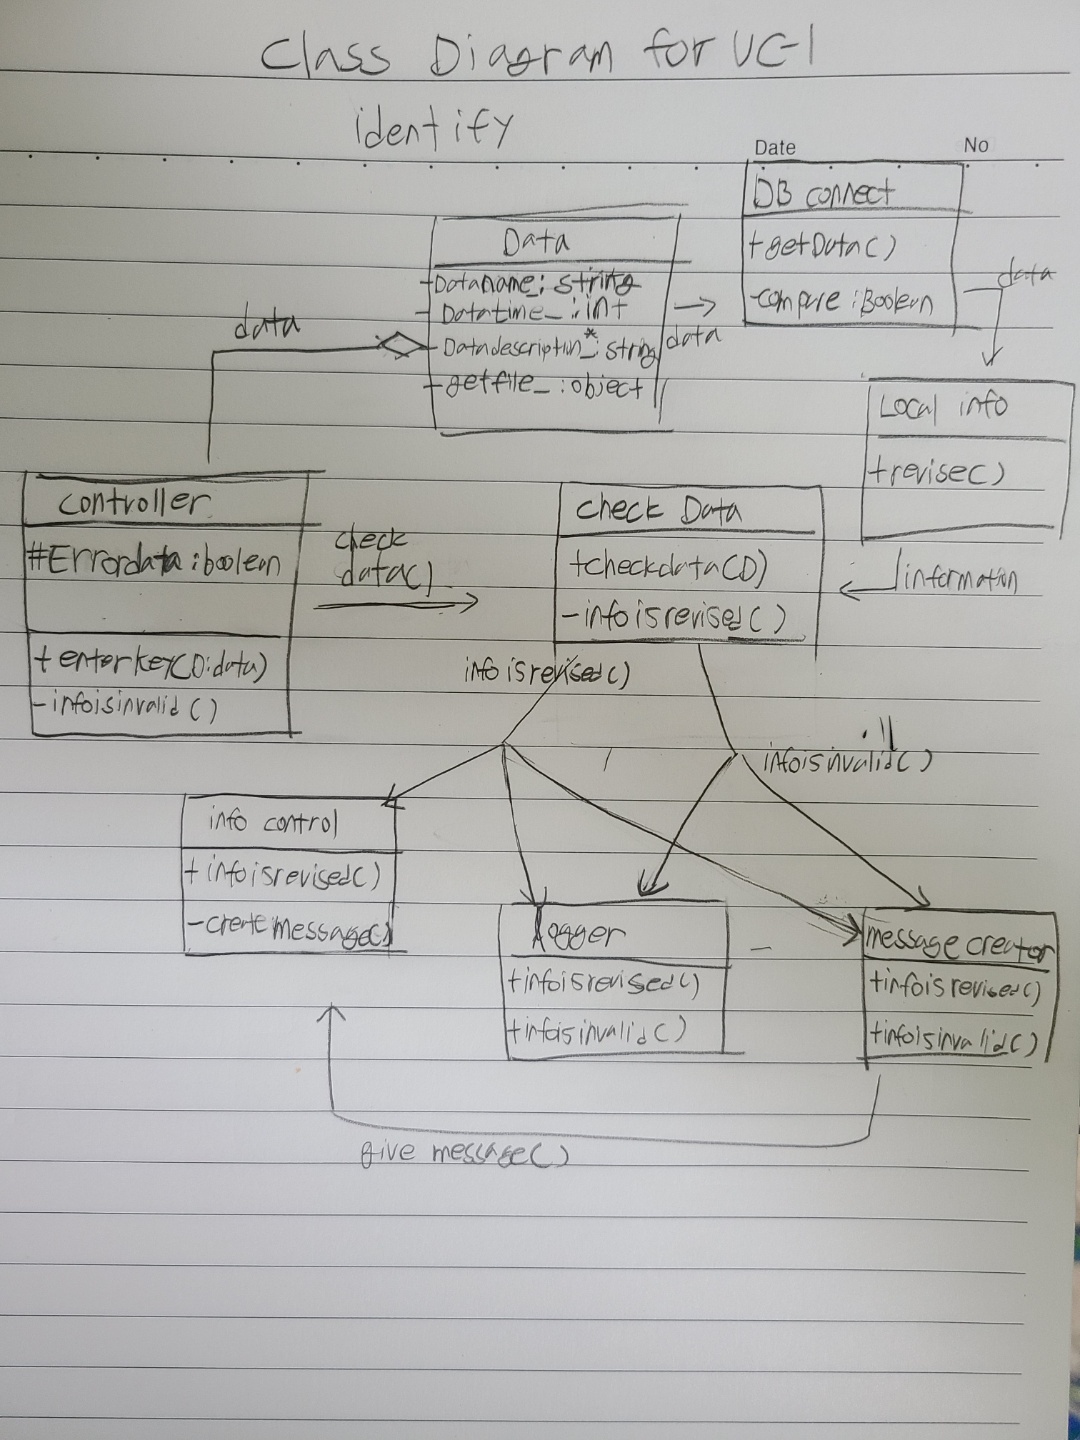 Class Diagram for UC-1
identify
Date
No
DB connect
+getData()
-compare:Boolean
data
Data
+Dataname: string
- Datatime_:int
- Datadescription_*: string
+getfile_:object
data
data
Local info
+revise()
information
controller
#Errordata:boolean
+enterkey(D:data)
-infoisinvalid()
check
data()
check Data
+checkdata(D)
-infoisrevised()
infoisrevised()
infoisinvalid()
info control
+infoisrevised()
-createmessage()
logger
+infoisrevised()
+infoisinvalid()
message creator
+infoisrevised()
+infoisinvalid()
give message()